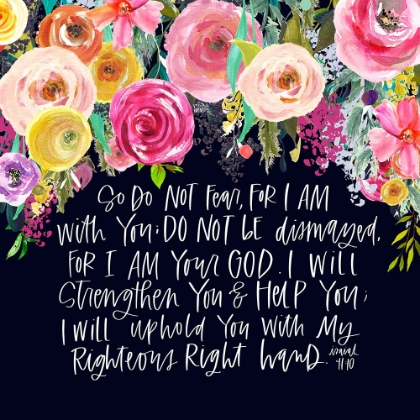 So Do Not Fear, For I AM
with You; DO NOT bE dismayed,
FOR I AM Your GOD. I Will
Strengthen You & HELP You;
I will uphold You With My
Righteous Right hand. isaiah
41:10